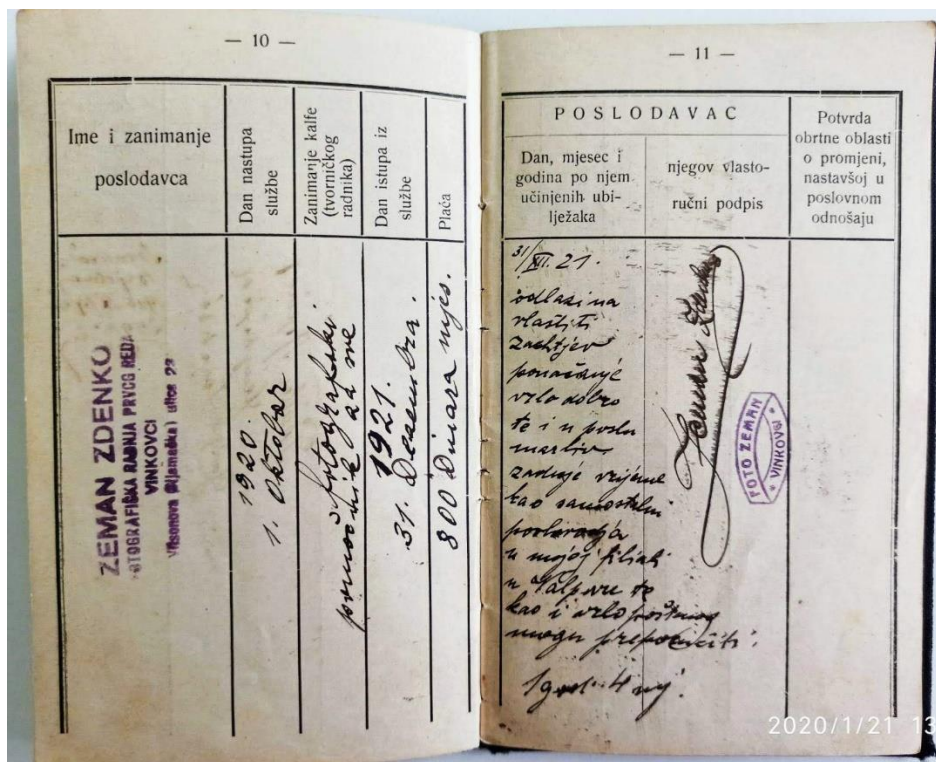 — 10 —
Ime i zanimanje
poslodavca
Dan nastupa
službe
Zanimanje kalfe
(tvorničkog
radnika)
Dan istupa iz
službe
Plaća
ZEMAN ZDENKO
FOTOGRAFIČKA RADNJA PRVOG REDA
VINKOVCI
ulica 22
1920.
1. Oktobar
fotografski
pomoćnik
1921.
31. Decembra.
800 Dinara mjes.
— 11 —
POSLODAVAC
Dan, mjesec i
godina po njem
učinjenih ubi-
lježaka
njegov vlasto-
ručni podpis
Potvrda
obrtne oblasti
o promjeni,
nastavšoj u
poslovnom
odnošaju
31/XII. 21.
odlazi na
vlastiti
zachtjev
ponašanje
vrlo dobro
te i u poslu
marljiv
zadnje vrijeme
kao samostalni
poslovadja
u mojoj filiali
u Valpovu te
kao i vrlo poštenog
mogu preporučiti.
1 god. 4 mj.
Zeman Zdenko
FOTO ZEMAN
* VINKOVCI *
2020/1/21 13